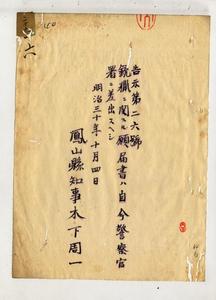 告示第二六號
銃獵ニ関スル願届書ハ自今警察官
署ニ差出スヘシ
明治三十年十月四日
鳳山縣知事木下周一